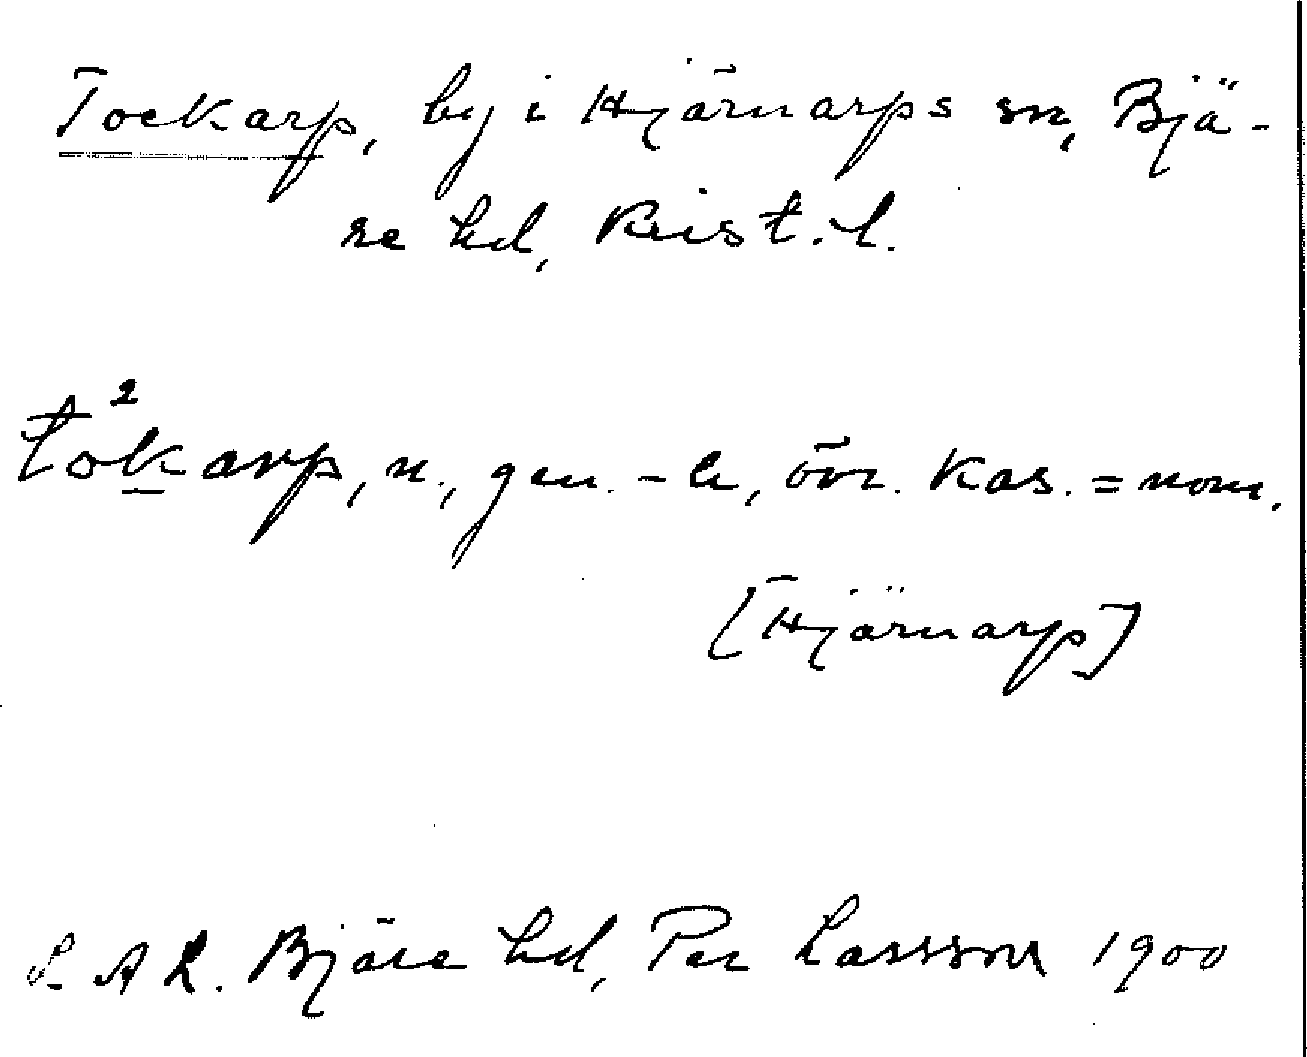 Tockarp, by i Hjärnarps sn, Bjä-
re hd, Krist. l.
to²karp, n., gen. -a, övr. kas. = nom.
[Hjärnarp]
L A L. Bjäre hd, Per Larsson 1900